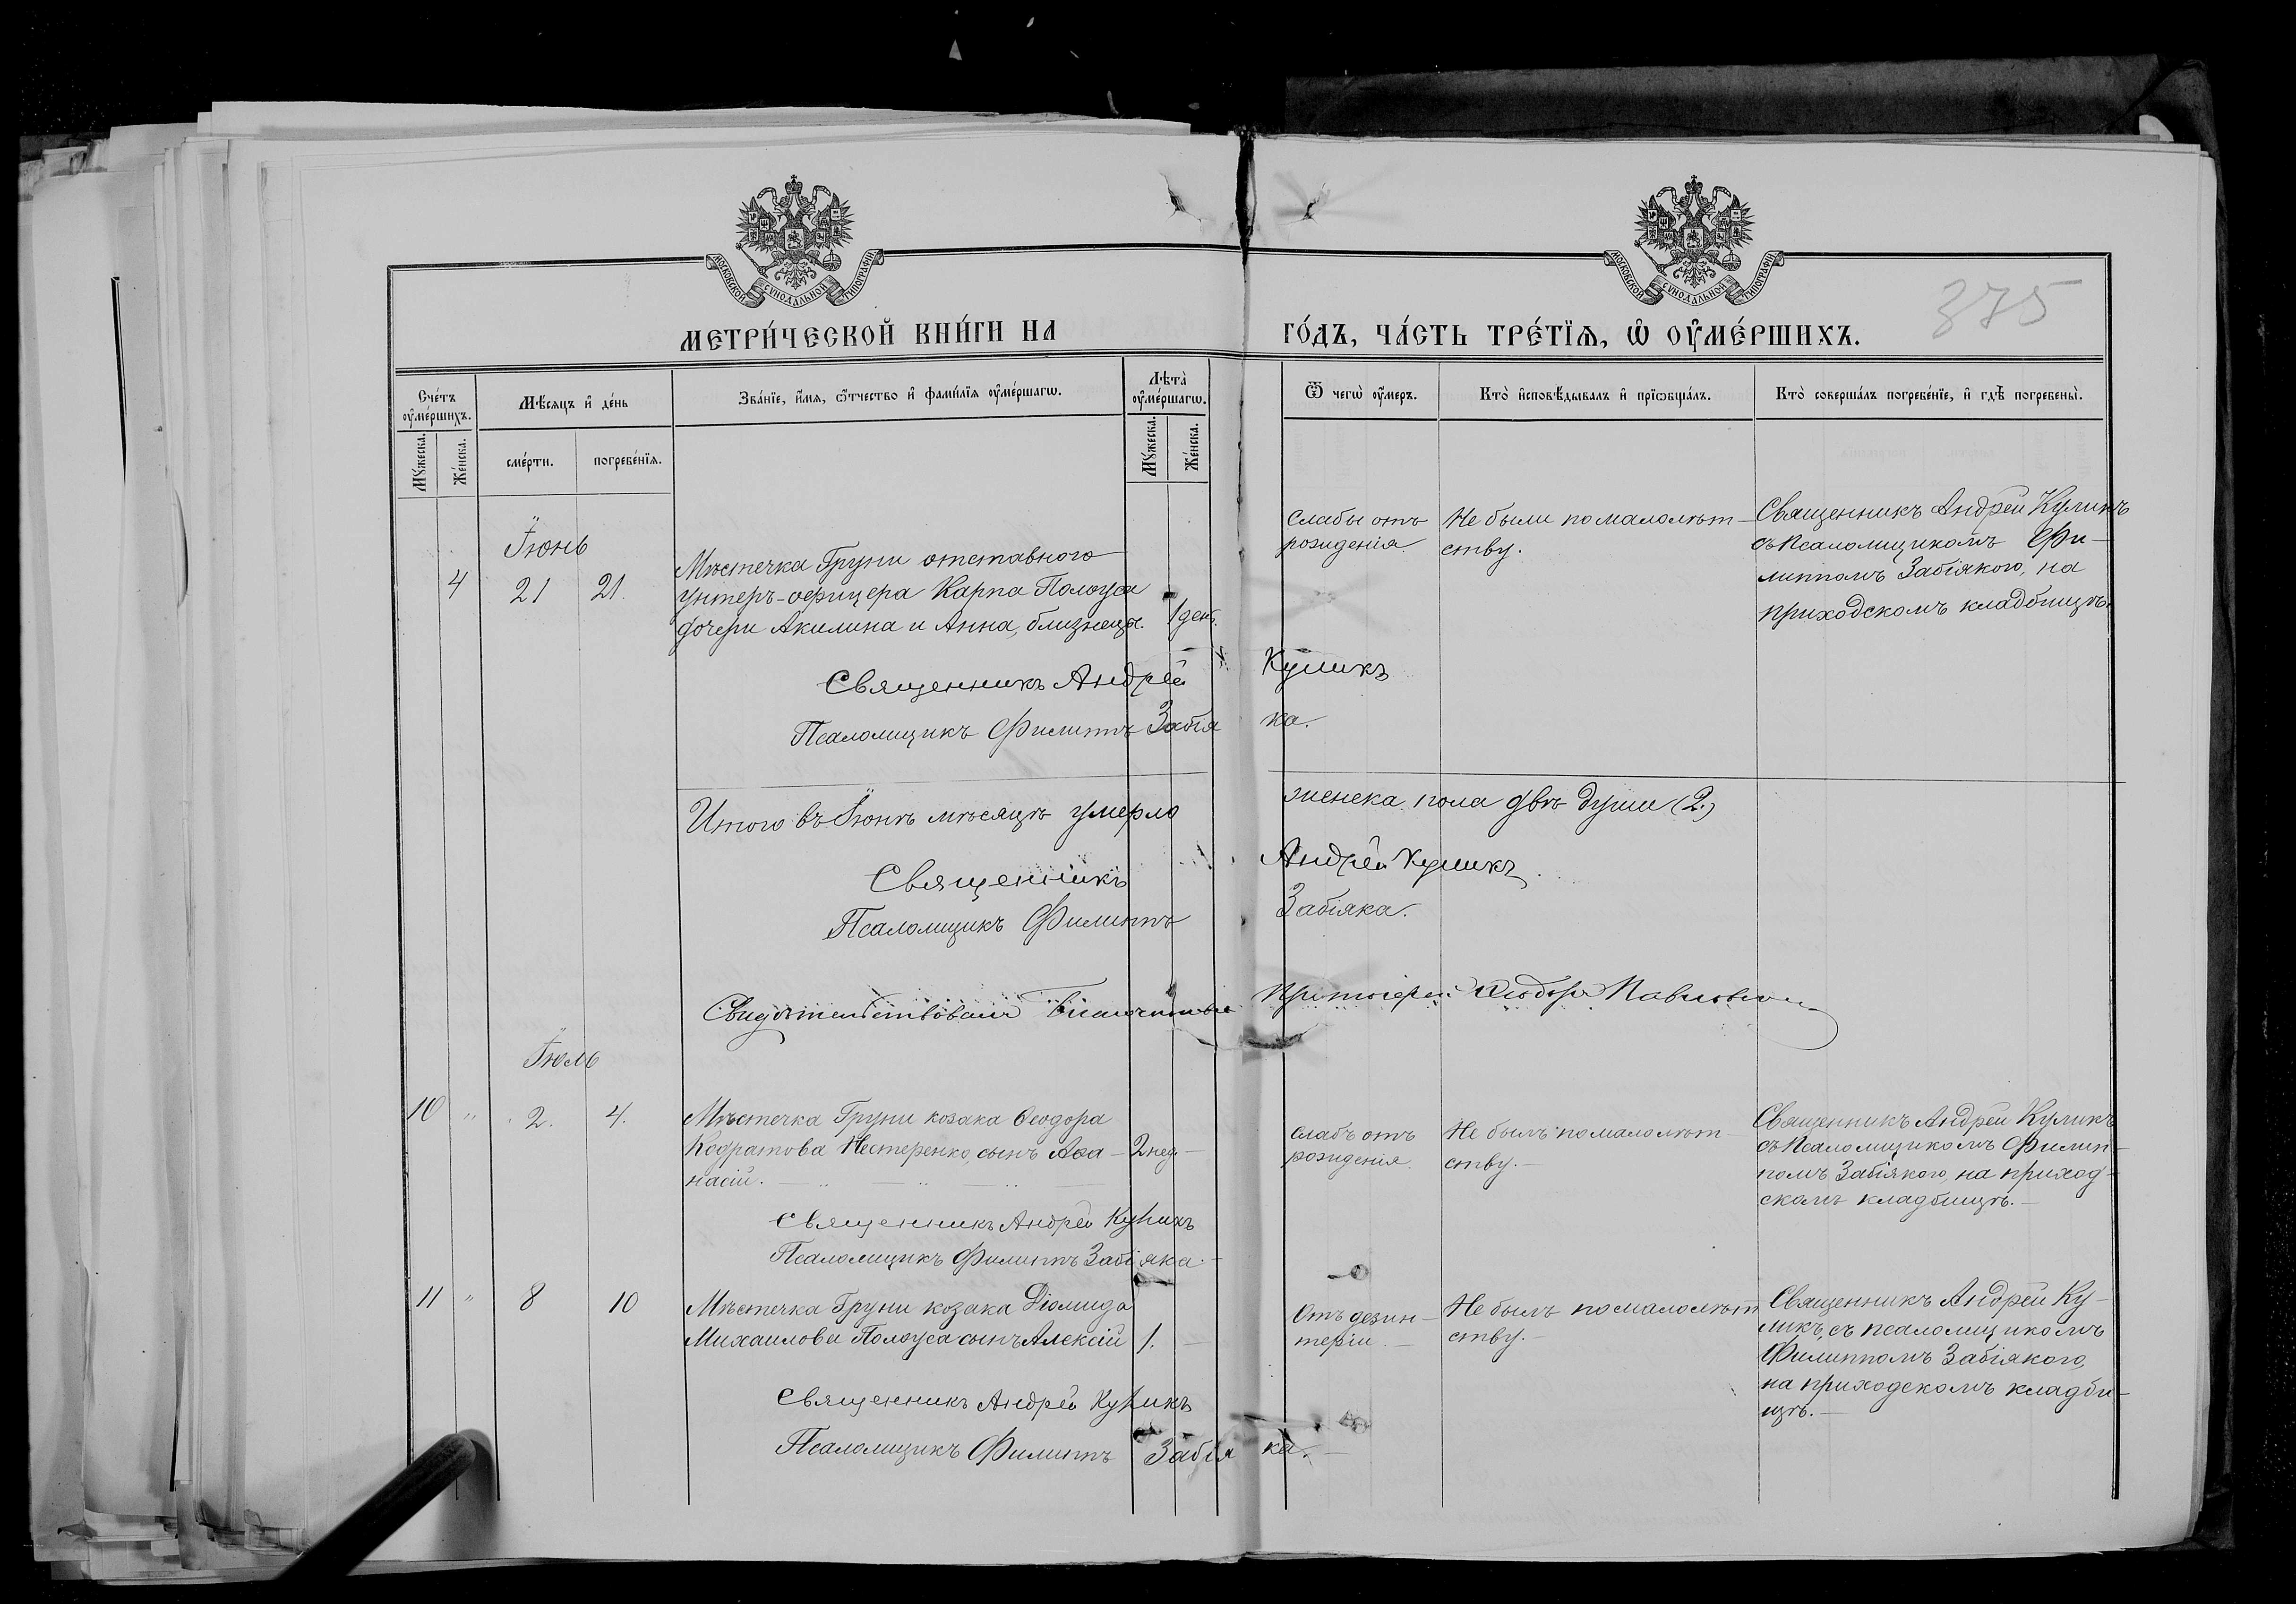 МОСКОВСКОЙ СѴНОДАЛЬНОЙ ТИПОГРАФІИ
МОСКОВСКОЙ СѴНОДАЛЬНОЙ ТИПОГРАФІИ
375
МЕТРИ́ЧЕСКОЙ КНИ́ГИ НА ГО́ДЪ, ЧА́СТЬ ТРЕ́ТЇѦ, Ѽ ОУ҆МЕ́РШИХЪ.
Сче́тъ оу҆ме́ршихъ.
Мѣ́сяцъ и҆ де́нь
Зва́нїе, и҆́мѧ, ѻ҆́тчество и҆ фами́лїѧ оу҆ме́ршагѡ.
Лѣта̀ оу҆ме́ршагѡ.
Ѿ чегѡ̀ оу҆́меръ.
Кто̀ и҆сповѣ́дывалъ и҆ прїѡбща́лъ.
Кто̀ соверша́лъ погребе́нїе, и҆ гдѣ̀ погребены̀.
Мꙋ́жеска.
Же́нска.
сме́рти.
погребе́нїѧ.
Мꙋ́жеска.
Же́нска.
Іюнь
4 21 21.
Мѣстечка Груни отставного
унтеръ-офицера Карпа Полоуса
дочери Акилина и Анна, близнецы. 1 день.
Слабы отъ
рожденія.
Не были по малолѣт-
ству.
Священникъ Андрей Куликъ
съ псаломщикомъ Фи-
липпомъ Забіякою, на
приходскомъ кладбищѣ.
Священникъ Андрей Куликъ
Псаломщикъ Филиппъ Забіяка.
Итого въ Іюнѣ мѣсяцѣ умерло женска пола двѣ души (2.)
Священникъ Андрей Куликъ
Псаломщикъ Филиппъ Забіяка.
Свидѣтельствовалъ Благочинный Протоіерей Ѳеодоръ
Іюль
10 " 2. 4.
Мѣстечка Груни козака Ѳеодора
Кодратова Нестеренко, сынъ Аѳа- 2 нед. -
насій.
Слабъ отъ
рожденія.
Не былъ по малолѣт-
ству.-
Священникъ Андрей Куликъ
съ псаломщикомъ Филип-
помъ Забіякою, на приход-
скомъ кладбищѣ.-
Священникъ Андрей Куликъ
Псаломщикъ Филиппъ Забіяка.-
11 " 8 10
Мѣстечка Груни козака Діомида
Михаилова Полоуса сынъ Алексій 1. -
Отъ дезин-
теріи.-
Не былъ по малолѣт
ству.-
Священникъ Андрей Ку-
ликъ, съ псаломщикомъ
Филиппомъ Забіякою,
на приходскомъ кладби-
щѣ.-
Священникъ Андрей Куликъ
Псаломщикъ Филиппъ Забіяка.-